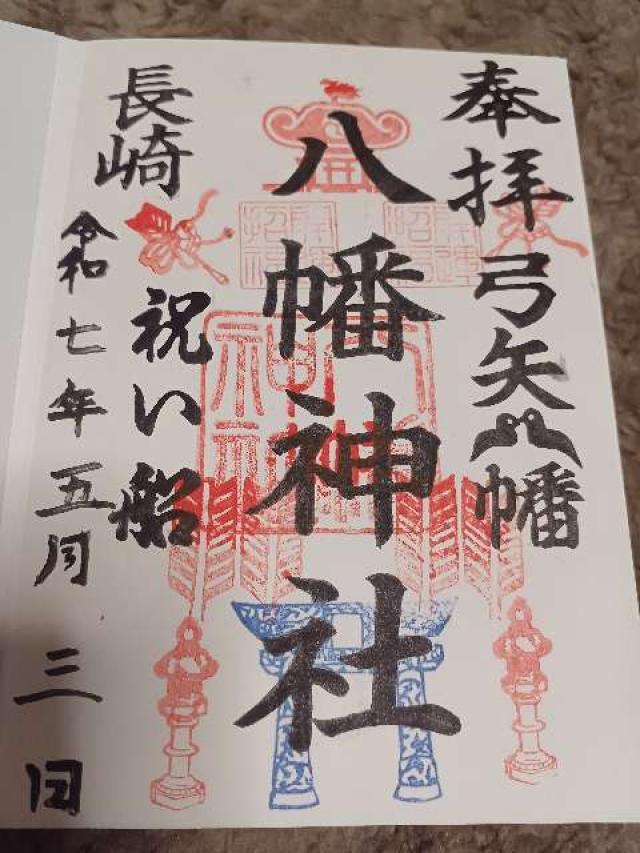 奉拝
弓矢八幡
八幡神社
長崎
祝い船
令和七年五月三日